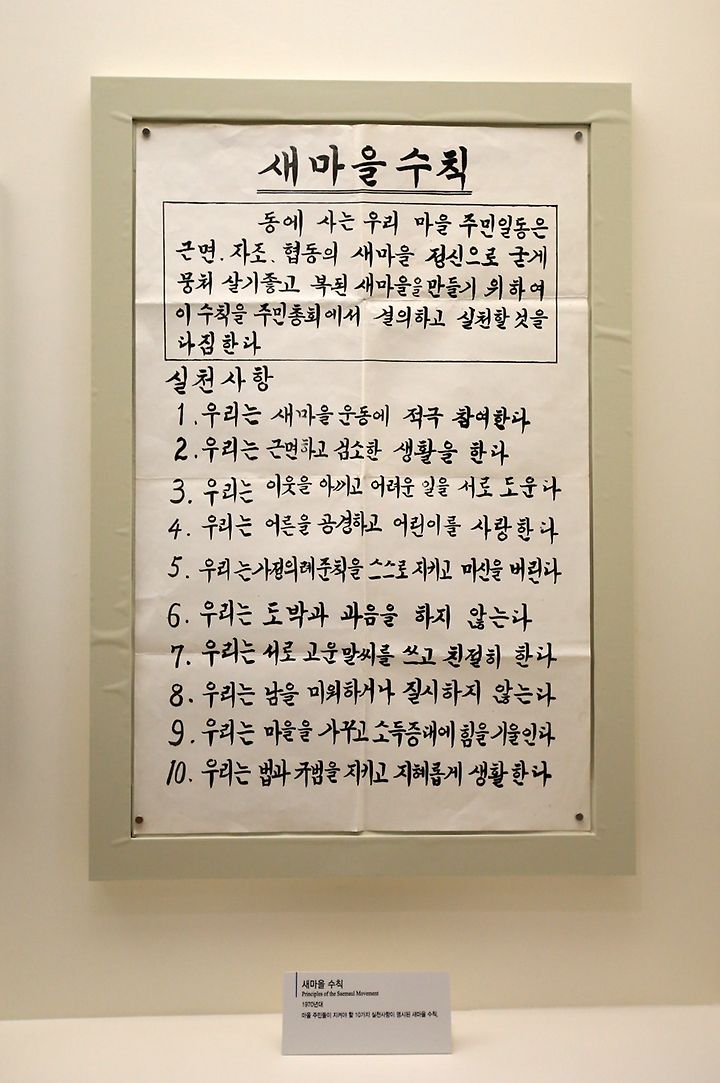 새마을수칙
동에 사는 우리 마을 주민일동은
근면. 자조. 협동의 새마을 정신으로 굳게
뭉처 살기좋고 복된 새마을을 만들기 위하여
이 수칙을 주민총회에서 결의하고 실천할 것을
다짐한다
실천사항
1. 우리는 새마을운동에 적극 참여한다
2. 우리는 근면하고 검소한 생활을 한다
3. 우리는 이웃을 아끼고 어려운 일을 서로 도운다
4. 우리는 어른을 공경하고 어린이를 사랑한다
5. 우리는 가정의례준칙을 스스로 지키고 미신을 버린다
6. 우리는 도박과 과음을 하지 않는다
7. 우리는 서로 고운말씨를 쓰고 친절히 한다
8. 우리는 남을 미워하거나 질시하지 않는다
9. 우리는 마을을 가꾸고 소득증대에 힘을 기울인다
10. 우리는 법과 규범을 지키고 지혜롭게 생활한다
새마을 수칙
Principles of the Saemaul Movement
1970년대
마을 주민들이 지켜야 할 10가지 실천사항이 명시된 새마을 수칙.